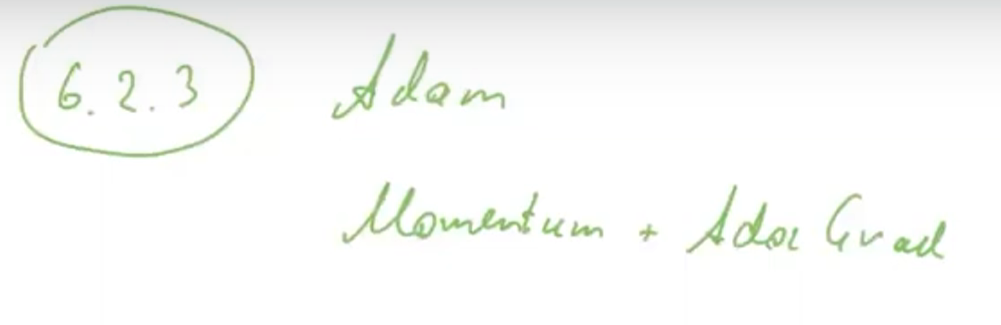 6.2.3 Adam
Momentum + Ada Grad